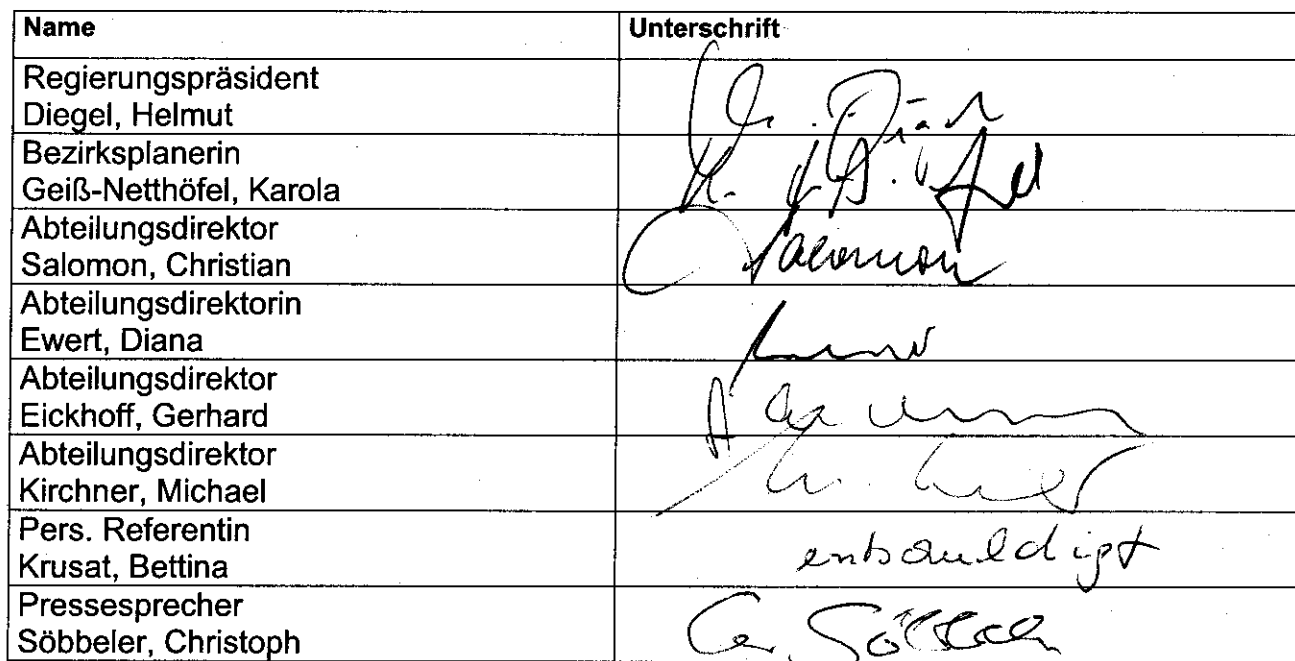 Name Unterschrift
Regierungspräsident
Diegel, Helmut
Bezirksplanerin
Geiß-Netthöfel, Karola
Abteilungsdirektor
Salomon, Christian Salomon
Abteilungsdirektorin
Ewert, Diana
Abteilungsdirektor
Eickhoff, Gerhard
Abteilungsdirektor
Kirchner, Michael
Pers. Referentin
Krusat, Bettina entschuldigt
Pressesprecher
Söbbeler, Christoph